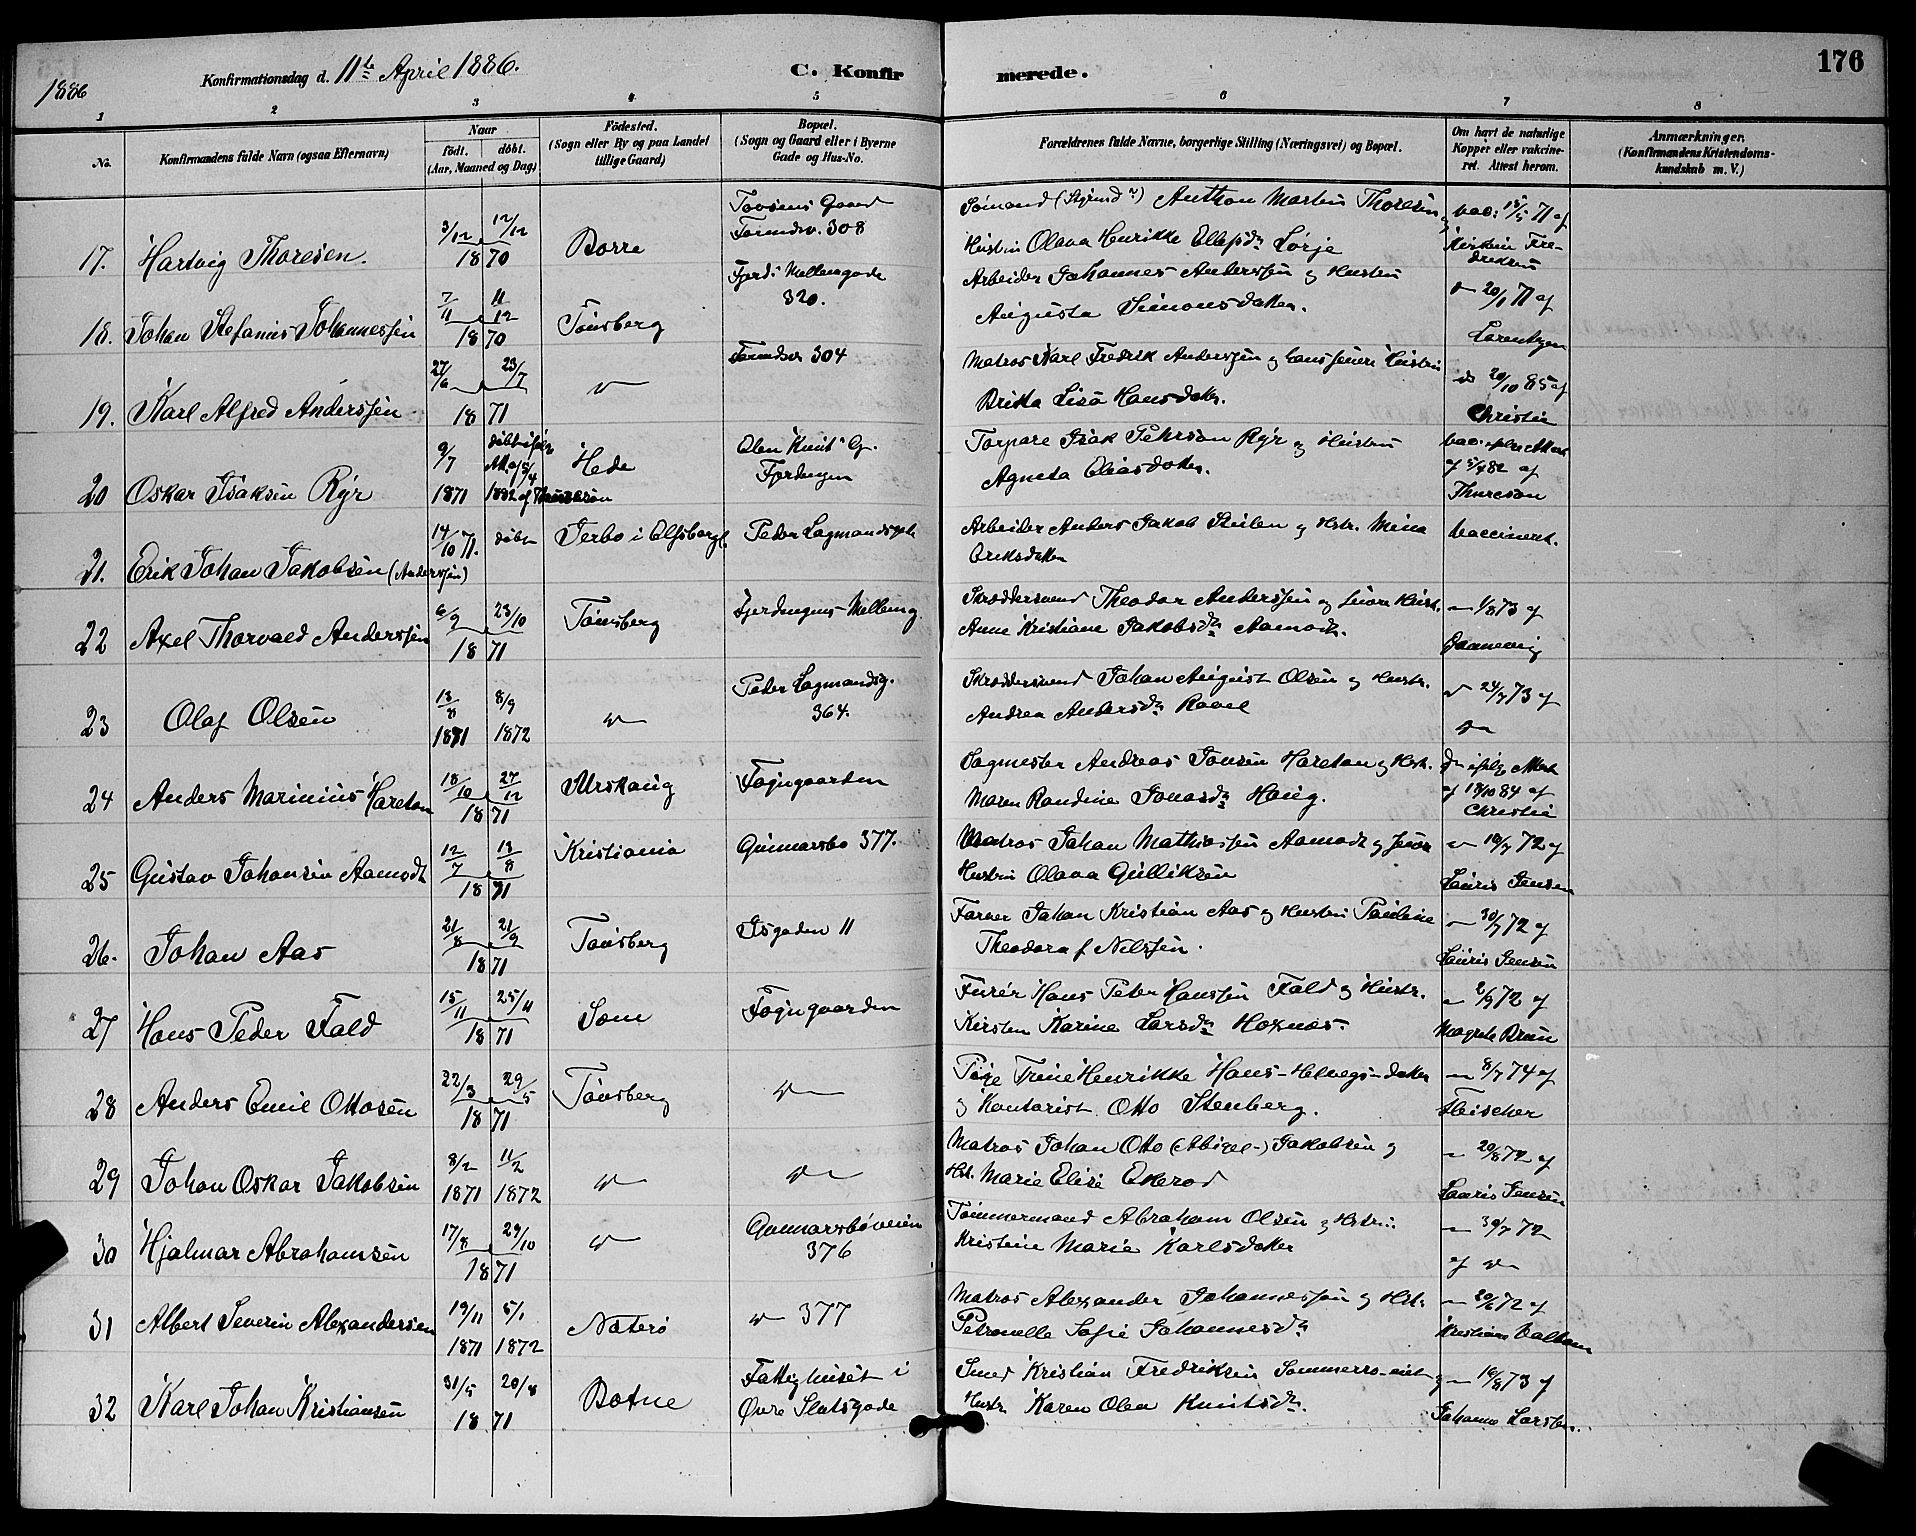 1886
Konfirmationsdag d. 11te April 1886.
C. Konfirmerede.
176
1 2 3 4 5 6 7 8
No.
Konfirmandens fulde Navn (ogsaa Efternavn)
Naar
født. døbt.
(Aar, Maaned og Dag)
Fødested.
(Sogn eller By og paa Landet
tillige Gaard)
Bopæl.
(Sogn og Gaard eller i Byerne
Gade og Hus-No.
Forældrenes fulde Navne, borgerlige Stilling (Næringsvei) og Bopæl.
Om havt de naturlige
Kopper eller vakcine-
ret. Attest herom.
Anmærkninger,
(Konfirmandens Kristendoms-
kundskab m. V.)
17. Hartvig Thoresen. 3/12 12/12 1870 Borre
Gaard
308
Sømand Anthon Martin Thoresen
Hustru Olava Henrikke
vac: 18/5 71 af
Fre-
driksen
18. Johan Stefanus Johannessen 7/11 11/12 1870 Tönsberg
320.
Arbeider Johannes Anderssen og Hustru
Augusta Simonsdatter.
20/1 71 af
Lorentzen
19. Karl Alfred Anderssen 27/6 23/7 1871 "
304
Matros Karl Fredrik Anderssen og hans Hustru
Britta Lisa Hansdatter.
20/10 85 af
Christie
20 Oskar Isaksen Ryr 9/7 1871
döbt ifölge
Att. af 5/4
1882 af Thuresson
Hede
Fjerdingen
Torpare Isak Pehrson Ryr og Hustru
Agneta Eliasdotter.
vac. ifölge Attest
af 5/4 82 af
Thureson
21. Erik Johan Jakobsen (Anderssen) 14/10 71. döbt
Peder Lagmandsgade
Arbeider Anders Jakob og Hstr. Mina
Eriksdatter
Vaccineret.
22 Axel Thorvald Anderssen 6/9 23/10 1871 Tönsberg
Skræddersvend Theodor Anderssen og Hustr.
Anne Kristiane Jakobsdtr Aamodt.
1/8 73 af
23 Olaf Olsen 13/8 1871 8/9 1872 "
Peder Lagmandsg.
364.
Skræddersvend Johan August Olsen og Hustr.
Andrea Andersdtr
24/7 73 af
24 Anders Marinius Hareton 18/10 27/12 1871 Urskaug
Föjngaarden
Sagmester Andreas Jonsen Haretan og Hstr.
Maren Randine Jonasdtr Haug.
Do ifølge Attest
af 18/10 84 af
Christie
25 Gustav Johansen Aamodt 12/7 13/8 1871 Kristiania
Gunnarsbo 377.
Matros Johan Mathiassen Aamodt og
Hustru Olava Gulliksen
18/7 72 af
Lauris Jensen
26. Johan Aas 21/8 21/9 1871 Tönsberg
11
Farver Johan Kristian Aas og Hustru Pauline
Theodora f. Nilssen.
30/7 72 af
Lauris Jensen
27 Hans Peder Fald 15/11 25/11 1871 Sem
Föjngaarden
Furér Hans Peter Hanssen Fald og Hustr.
Kirsten Karine Larsdtr Hoxnæs.
2/9 72 af
Magrete Bruun
28 Anders Emil Ottosen 22/3 29/5 1871 Tönsberg "
Pige Trine Henrikke Hans-Helvegs-datter
og Kontorist Otto Stenberg.
8/7 74 af
Fleischer
29 Johan Oskar Jakobsen 8/2 1871 11/2 1872 " "
Matros Johan Otto (Abigel-) Jakobsen og
Hst. Marie Elise Ekerod
20/8 72 af
Lauris Jensen
30 Hjalmar Abrahamsen 17/8 29/10 1871 "
Gunnarsbøveien
376
Tömmermand Abraham Olsen og Hstru.
Kristine Marie Karlsdatter
30/7 72
af "
31 Albert Severin Alexandersen 19/11 1871 5/1 1872 Nöterö
" 377
Matros Alexander Johannessen og Hstr.
Petronelle Sofie Johannesdtr
20/6 72 af
Kristiane
32 Karl Johan Kristiansen 31/5 20/8 1871 Botne
Fattighuset i
Övre Slotsgade
Smed Kristian Fredriksen Sommerro-eiet og
Hustr. Karen Olea Knutsdtr.
16/8 73 af
Johanne Larsen.